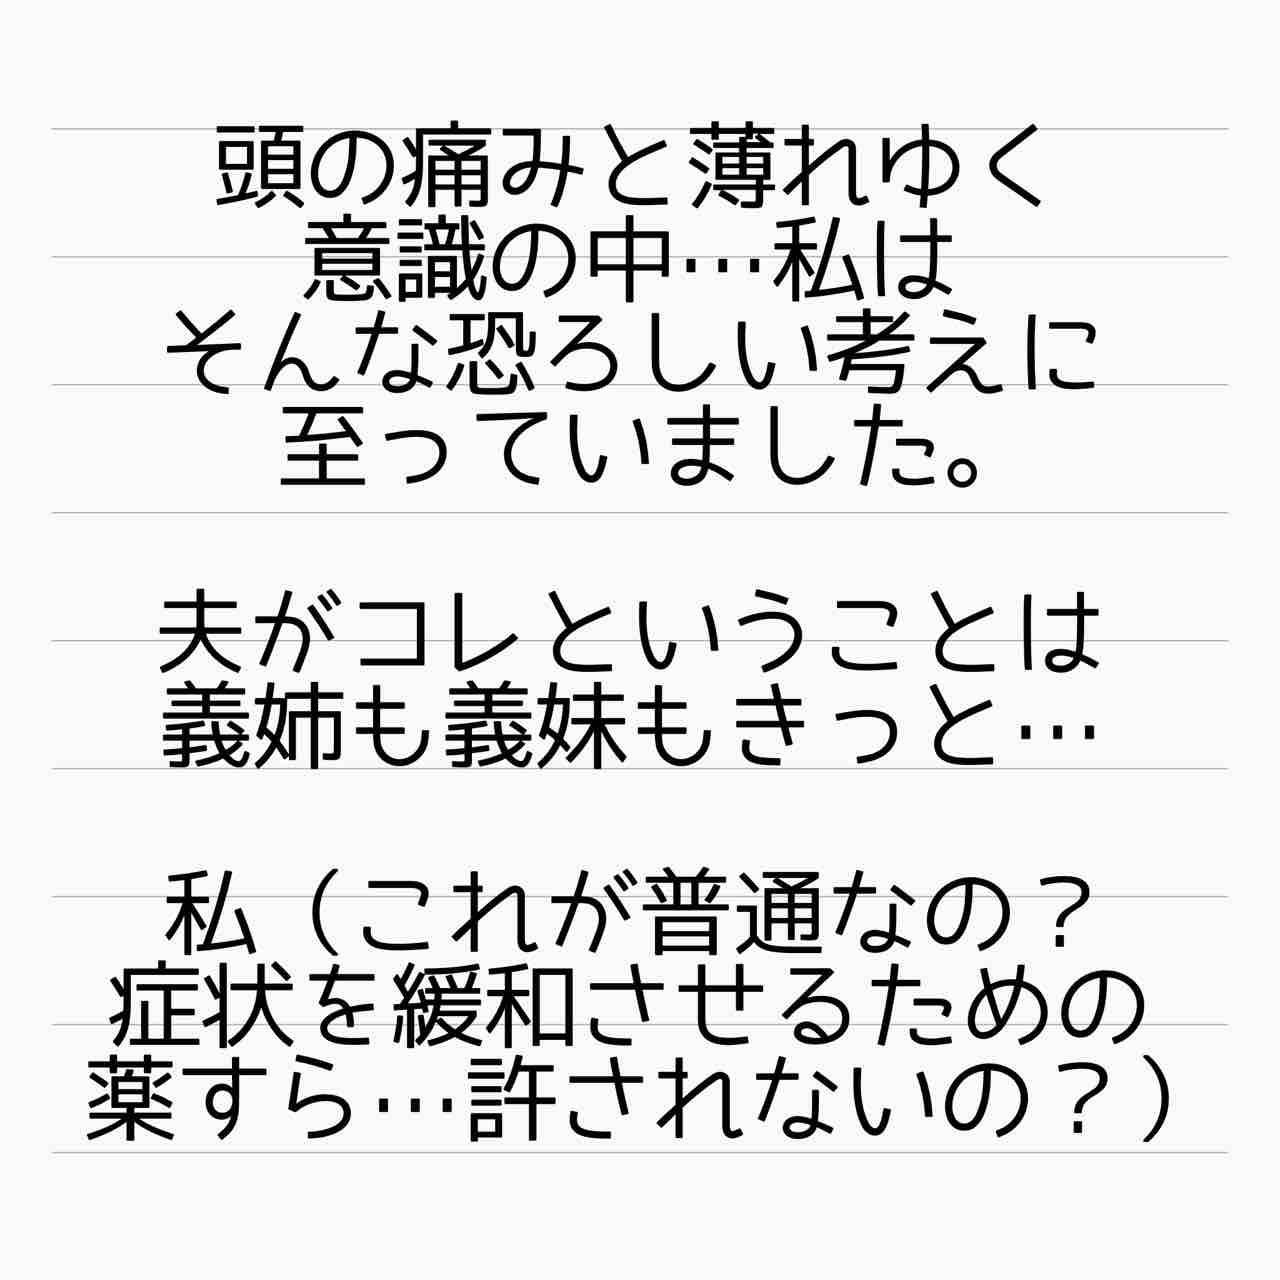 頭の痛みと薄れゆく
意識の中…私は
そんな恐ろしい考えに
至っていました。
夫がコレということは
義姉も義妹もきっと…
私（これが普通なの？
症状を緩和させるための
薬すら…許されないの？）